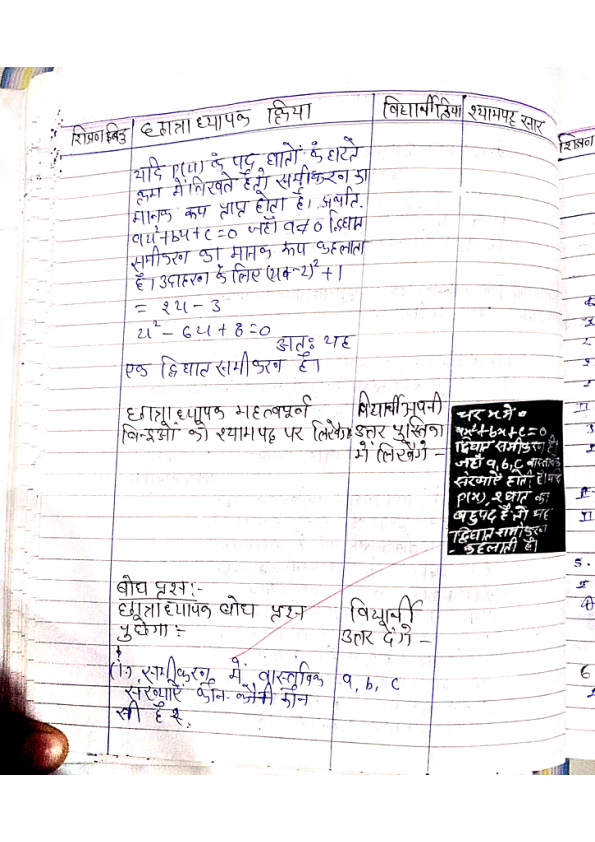 शिक्षण बिंदु छात्राध्यापक क्रिया विद्यार्थी क्रिया श्यामपट्ट सार
शिक्षण
यदि P(x) के पद घातों के घटते
क्रम में लिखते हैं तो समीकरण का
मानक रूप प्राप्त होता है। अर्थात
ax²+bx+c=0 जहाँ a≠0 द्विघात
समीकरण का मानक रूप कहलाता
है। उदाहरण के लिए (x-2)²+1
= 2x-3
x²-6x+8=0
अतः यह
एक द्विघात समीकरण है।
छात्राध्यापक महत्वपूर्ण
बिन्दुओं को श्यामपट्ट पर लिखेगा
विद्यार्थी अपनी
उत्तर पुस्तिका
में लिखेंगे -
चर x में
ax²+bx+c=0
द्विघात समीकरण है।
जहाँ a, b, c वास्तविक
संख्याएँ होती है।
P(x), 2 घात का
बहुपद है तो यह
द्विघात समीकरण
- कहलाती है।
बोध प्रश्न:-
छात्राध्यापक बोध प्रश्न
पुछेगा:-
विद्यार्थी
उत्तर देंगे -
(1) समीकरण में वास्तविक
संख्याएँ कौन-कौन
सी है?
a, b, c